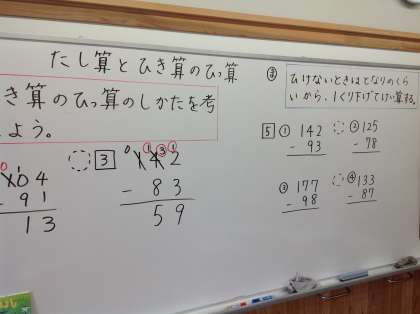 たし算とひき算のひっ算
き算のひっ算のしかたを考
よう。
ま
ひけないときはとなりのくら
いから、1くり下げてけい算する。
0 1
104
- 91
13
3
0 1 3 1
142
- 83
59
5 ① 142
- 93
② 125
- 78
③ 177
- 98
④ 133
- 87